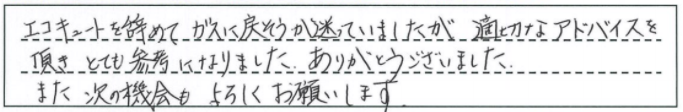 エコキュートを辞めて ガスに戻そうか迷っていましたが 適切なアドバイスを
頂き とても参考になりました。ありがとうございました。
また 次の機会も よろしくお願いします